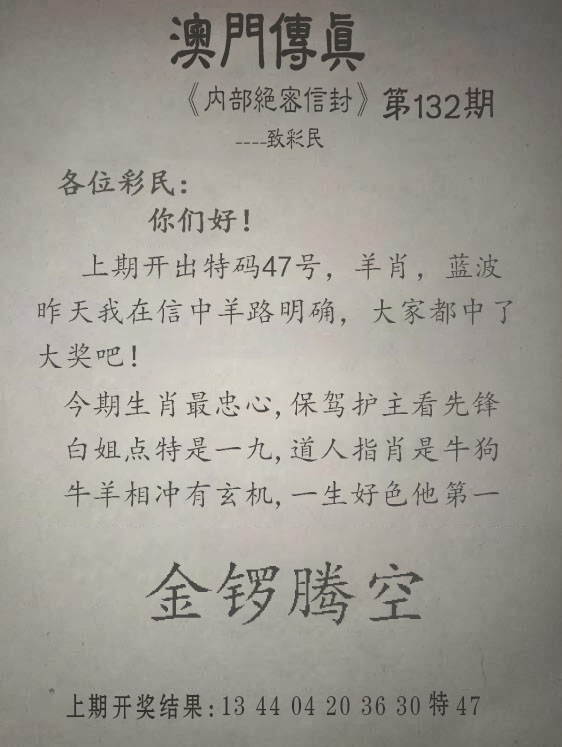 澳門傳眞
《内部絕密信封》第132期
----致彩民
各位彩民：
你们好！
上期开出特码47号，羊肖，蓝波
昨天我在信中羊路明确，大家都中了
大奖吧！
今期生肖最忠心,保驾护主看先锋
白姐点特是一九,道人指肖是牛狗
牛羊相冲有玄机,一生好色他第一
金锣腾空
上期开奖结果:13 44 04 20 36 30 特 47